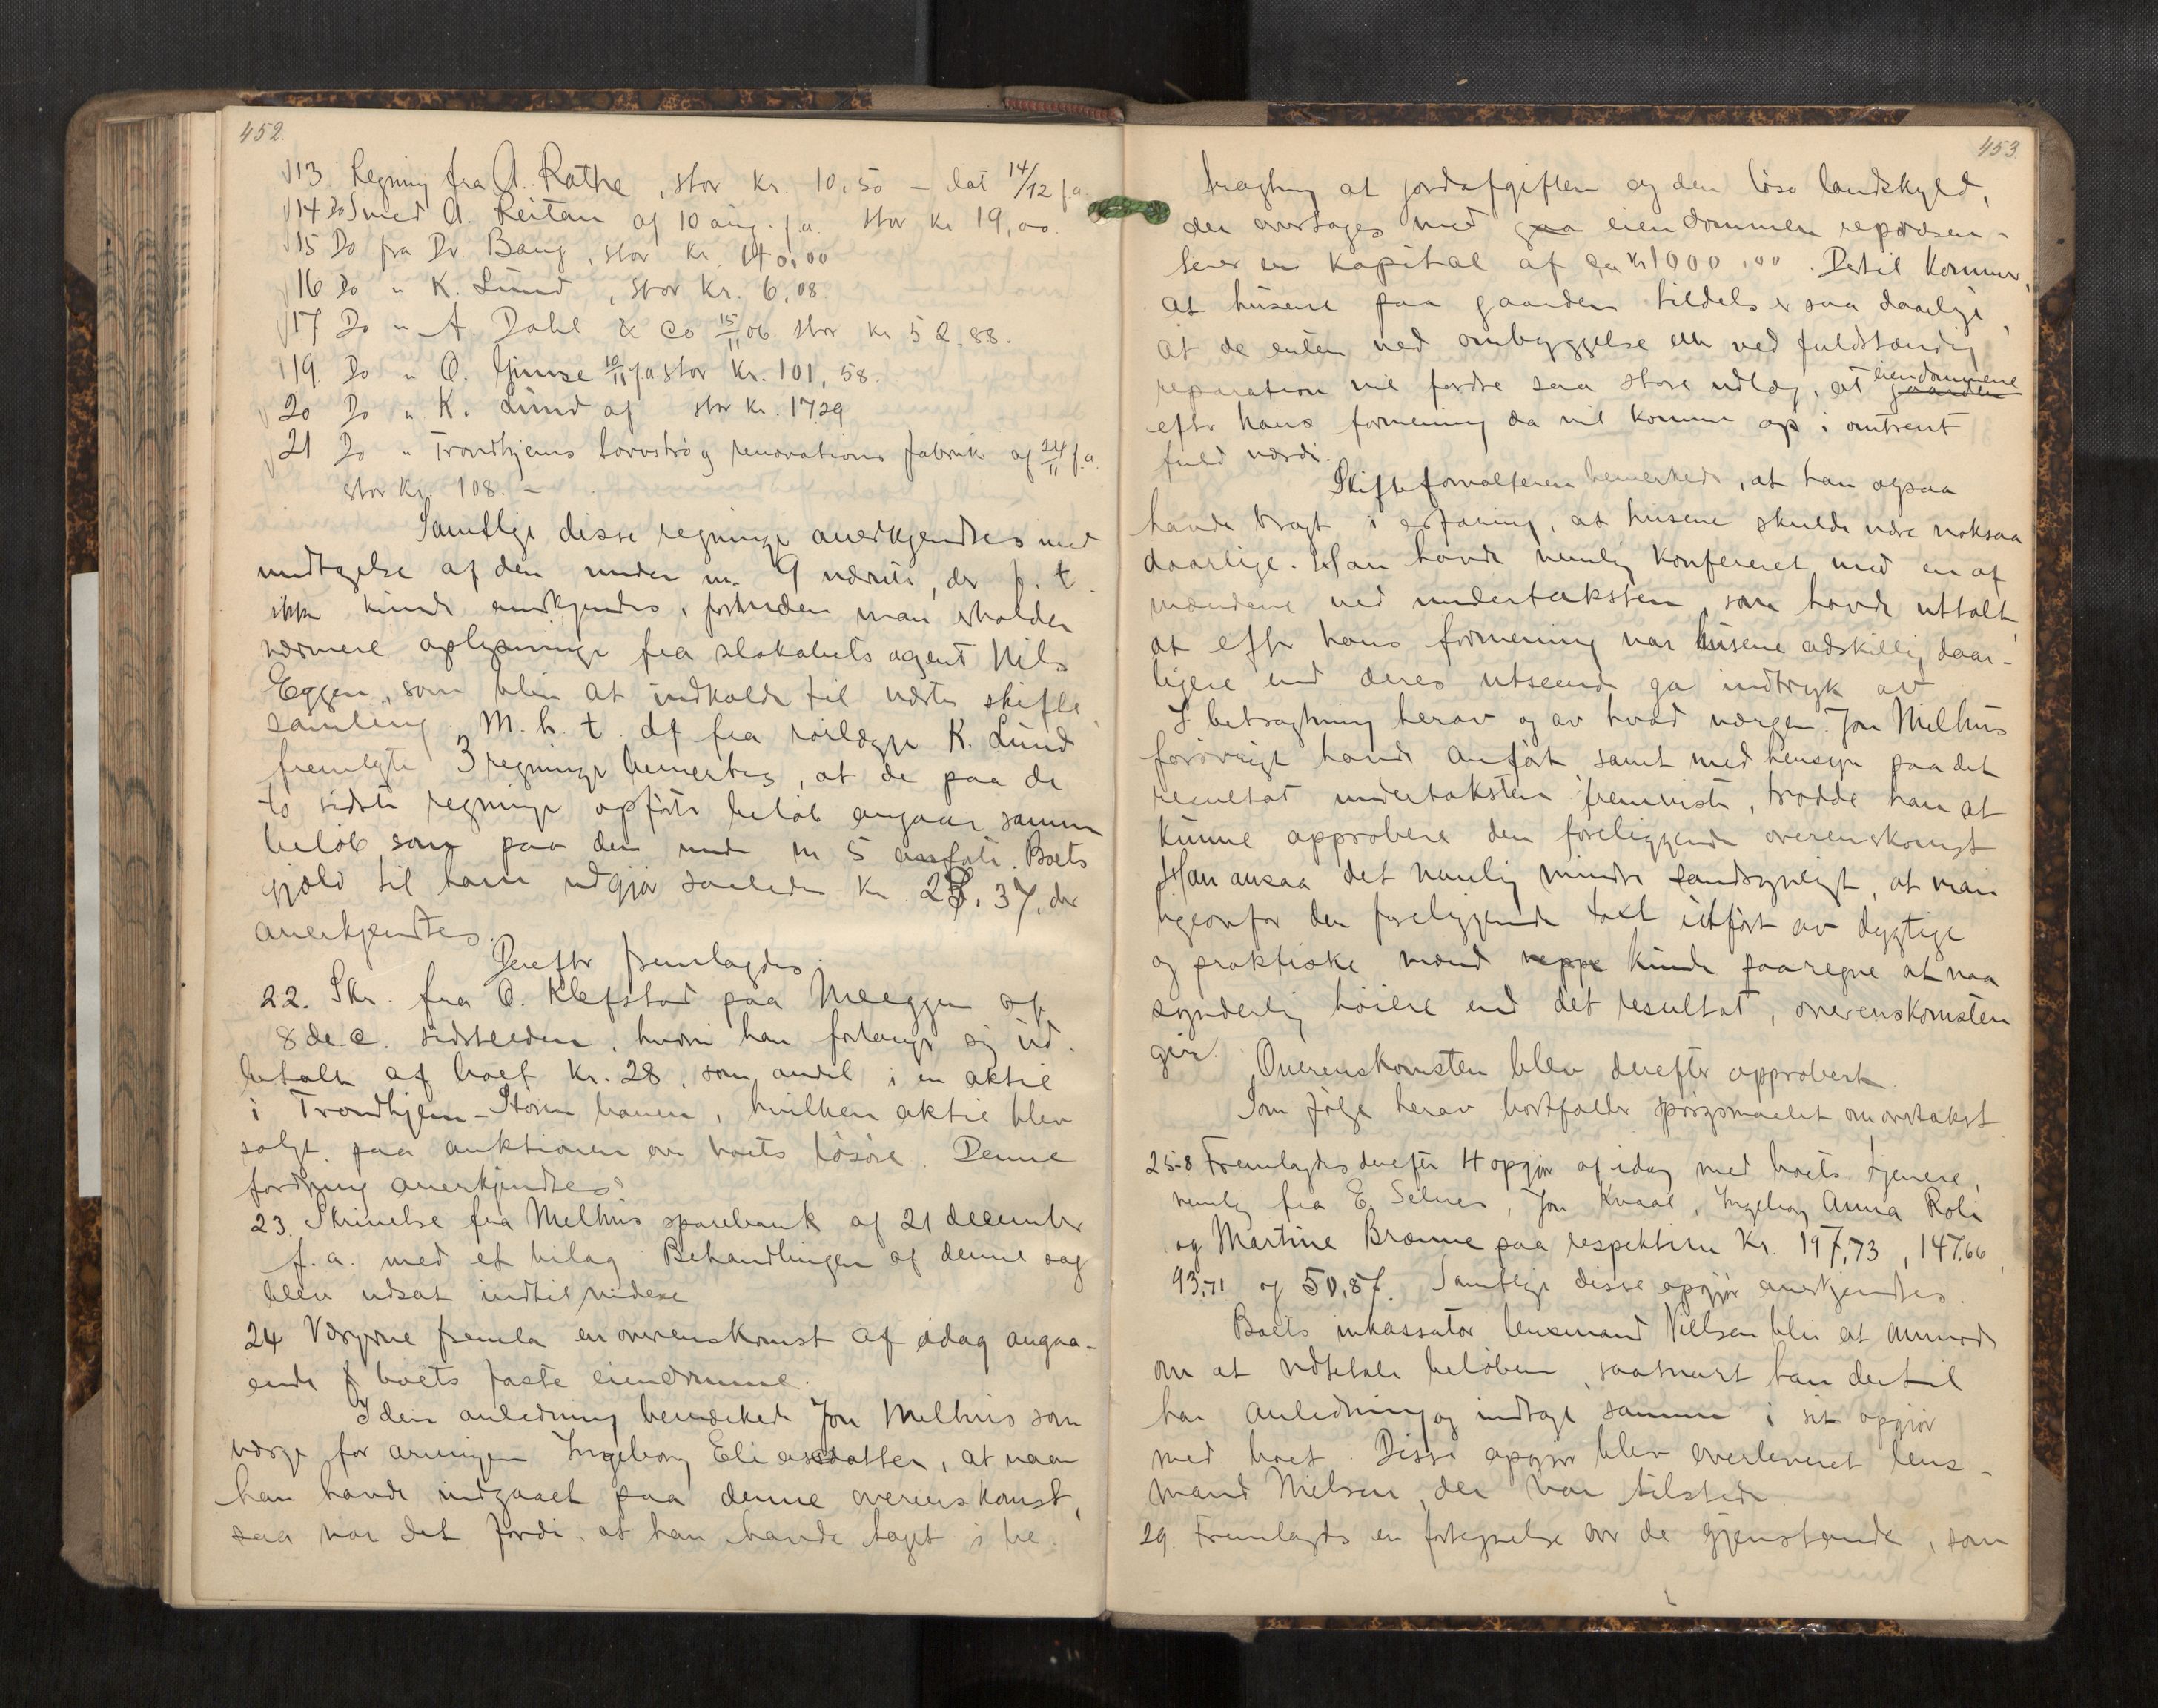 452.
13 Regning fra A. Rathe, stor kr. 10,50 – dat 14/12 f.a.
14 Do med A. Reitan af 10 aug. f.a. stor kr 19,00.
15 Do fra Dr. Bang, stor kr. 140,00
16 Do " K. Lund, stor kr. 6,08.
17 Do " A. Dahl & Co 15/11 06 stor kr 52,88.
19 Do " O. Gimse 10/11 f.a. stor kr. 101,58.
20 Do " K. Lund af stor kr. 17,29
21 Do " Trondhjems torvstrø og renovations fabrik af 24/11 f.a.
stor kr. 108. –
Samtlige disse regninger anerkjendtes med
undtagelse af den under nr. 9 nævnte, der f. t.
ikke kunde anerkjendes, forinden man erholder
nærmere oplysninger fra selskabets agent Nils
Eggen, som blir at indkalde til næste skifte
samling. M. h. t. de fra rørlægger K. Lund
fremlagte 3 regninger bemerkes, at de paa de
to sidste regninger opførte beløb angaar samme
beløb som paa den under nr 5 anførte. Boets
gjæld til ham udgjør saaledes kr. 23,37, der
anerkjendtes.
Derefter fremlagdes:
22. Skr. fra O. Klefstad paa Meeggen af
8 de c. sidstleden, hvori han forlanger sig ud-
betalt af boet kr. 28, som andel i en aktie
i Trondhjem-Størenbanen, hvilken aktie blev
solgt paa auktionen over boets løsøre. Denne
fordring anerkjendtes.
23. Skrivelse fra Melhus sparebank af 21 december
f.a. med et bilag. Behandlingen af denne sag
blev udsat indtil videre
24 Værgerne fremla en overenskomst af idag angaa-
ende boets faste eiendomme.
I den anledning bemærkede Jon Melhus som
værge for arvingen Ingeborg Eliasdatter, at naar
han havde indgaaet paa denne overenskomst,
saa var det fordi at han havde taget i be-
453.
tragtning at jordafgiften og den løse landskyld,
der overtages med eiendommen repræsen-
terer en kapital af ca kr 1000,00. Dertil kommer,
at husene paa gaarden tildels er saa daarlige,
at de enten ved ombyggelse eller ved fuldstændig
reparation vil fordre saa store udlæg, at eiendommene gaarden
efter hans formening da vil komme op i omtrent
fuld værdi.
Skifteforvalteren bemerkede, at han ogsaa
havde bragt i erfaring, at husene skulde være noksaa
daarlige. Han havde nemlig konfereret med en af
mændene ved undertaksten, som havde uttalt,
at efter hans formening var husene adskillig daar-
ligere end deres utseende ga indtryk av
I betragtning herav og av hvad værgen Jon Melhus
forøvrigt havde anført, samt med hensyn paa det
resultat undertaksten fremviste, trodde han at
kunne approbere den foreliggende overenskomst
Han ansaa det nemlig mindre sandsynligt, at man
ligeoverfor den foreliggende takst utført av dygtige
og praktiske mænd neppe kunde paaregne at naa
synderlig høiere end det resultat, overenskomsten
gir.
Overenskomsten blev derefter approbert.
Som følge herav bortfalder spørgsmaalet om overtakst
25-8 Fremlagdes derefter 4 opgjør af idag med boets tjenere,
nemlig fra E. Selnes, Jon Kvaal, Ingeborg Anna Roli
og Martine Brænne paa respektive kr. 197,73, 147,66,
93,71 og 50,87. Samtlige disse opgjør anerkjendtes.
Boets inkassator lensmand Nielsen blir at anmode
om at udbetale beløbene, saasnart han dertil
har anledning og indtage samme i sit opgjør
med boet. Disse opgjør blev overleveret lens-
mand Nielsen, der var tilstede
29. Fremlagdes en fortegnelse over de gjenstande, som